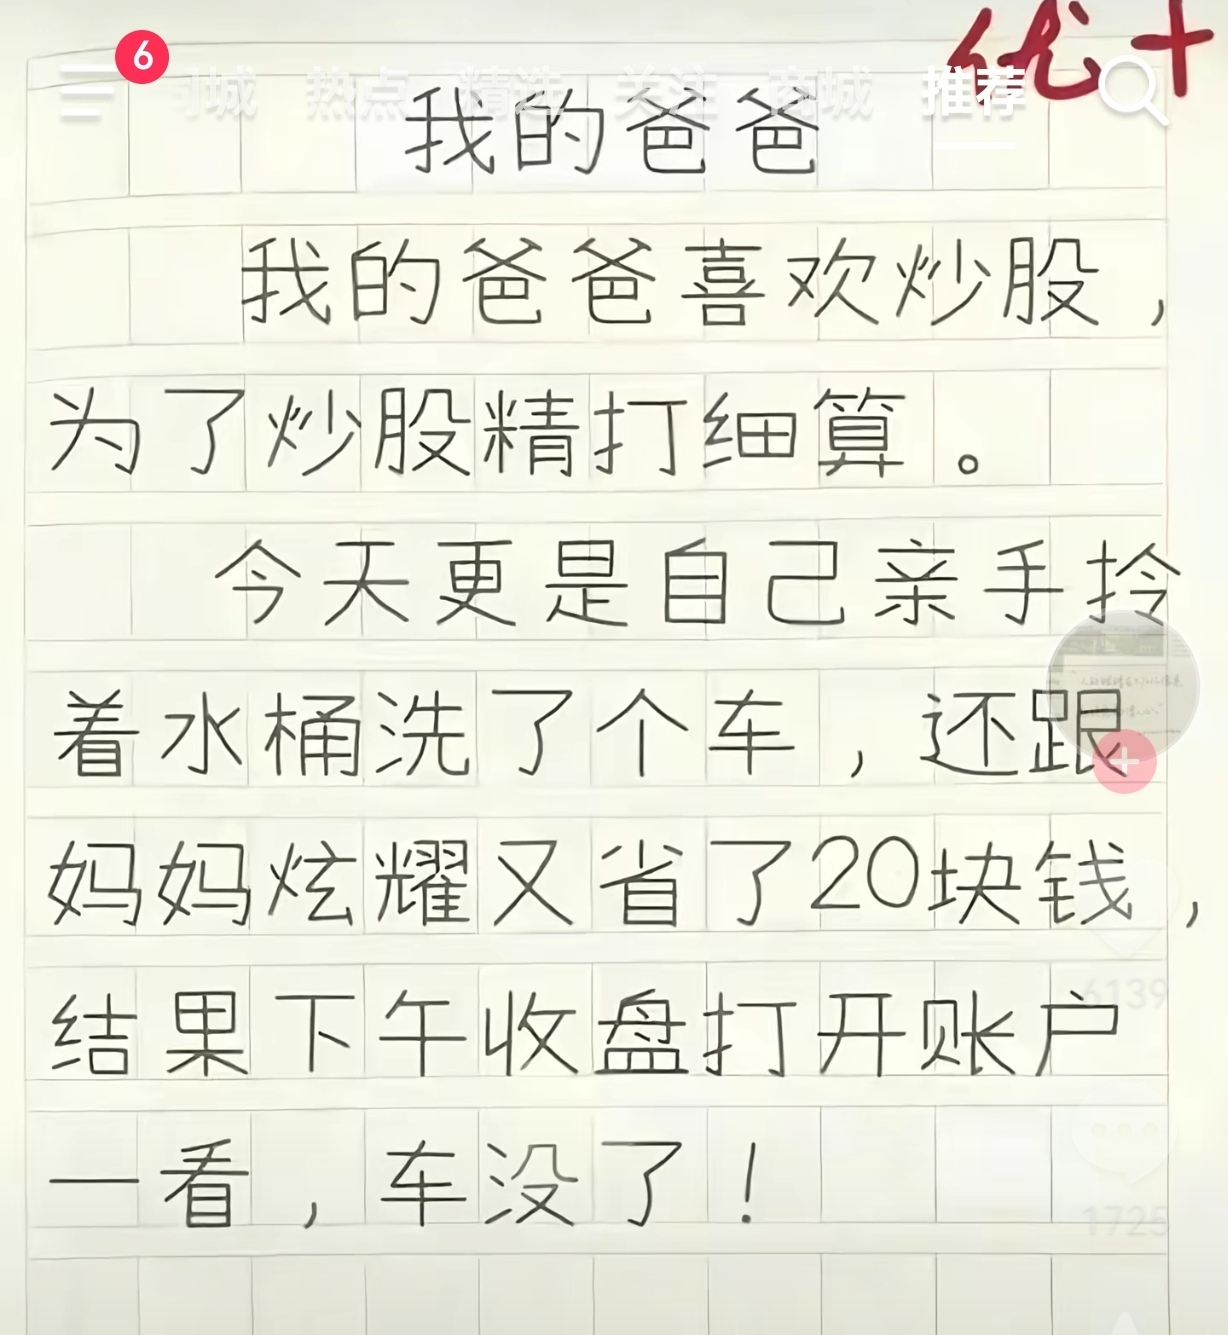 优+
6
同城 热点 精选 关注 商城 推荐
我的爸爸
我的爸爸喜欢炒股，
为了炒股精打细算。
今天更是自己亲手拎
着水桶洗了个车，还跟
妈妈炫耀又省了20块钱，
结果下午收盘打开账户
一看，车没了！
6139
1725